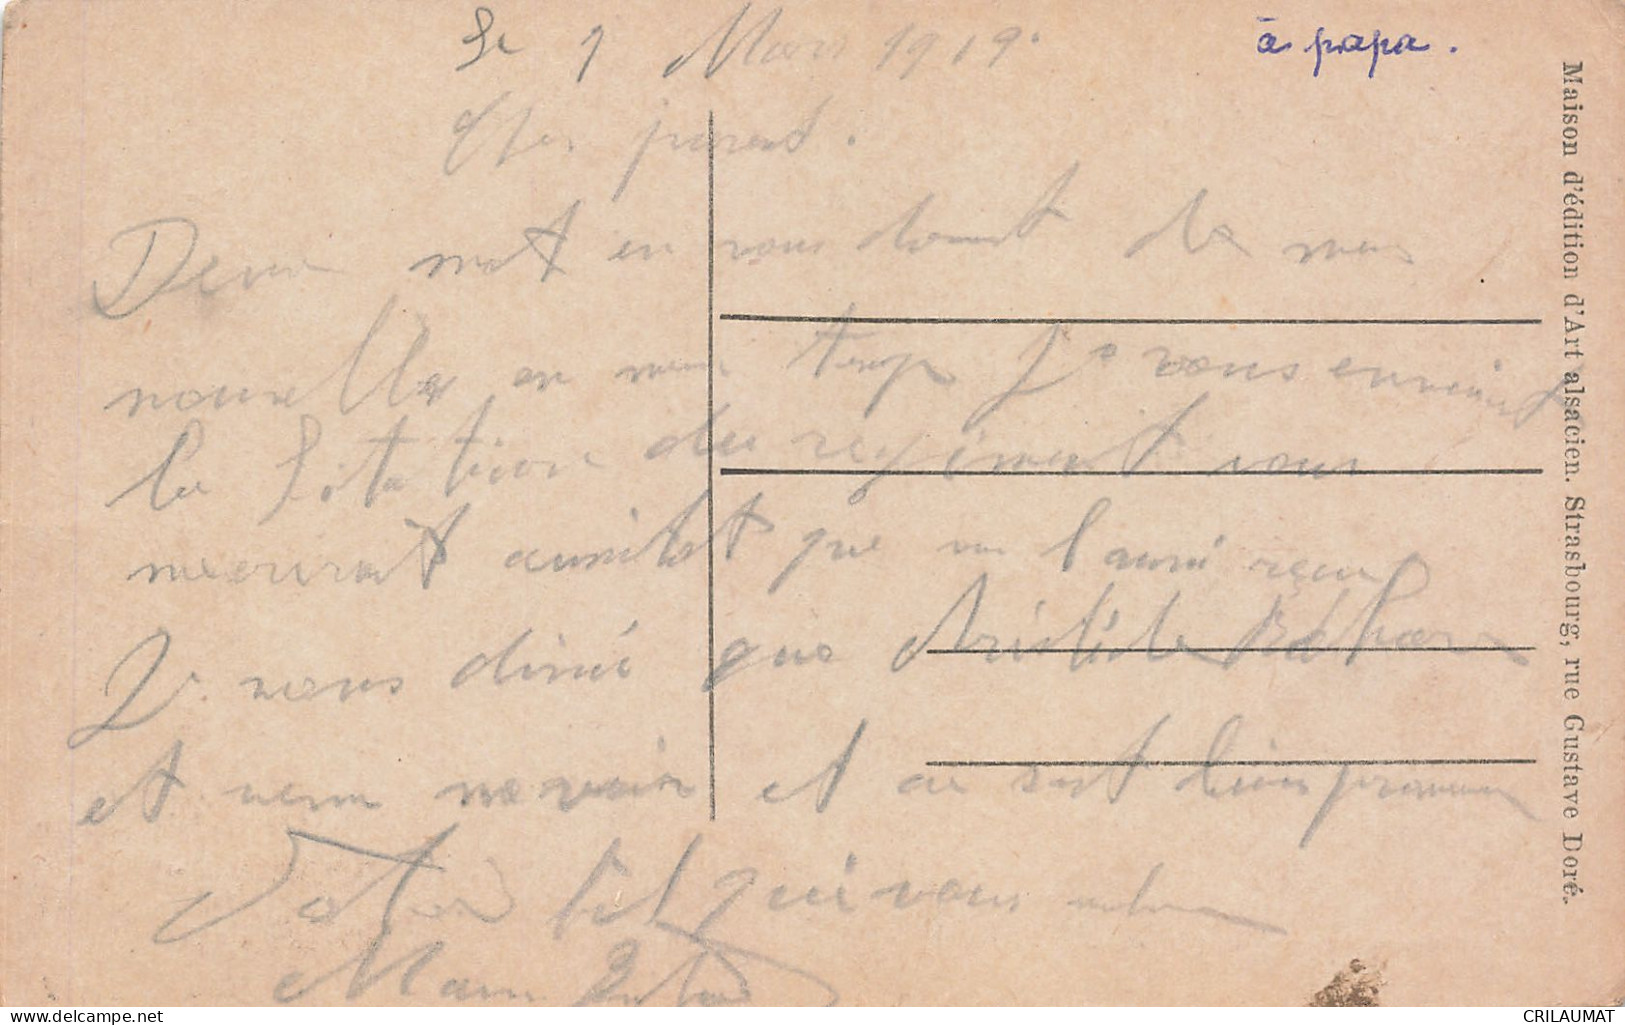 Le 1 Mars 1919.
à papa.
Cher parent.
Deux mot en vous donant de mes
nouvelle en meme temp Je vous envoie
la Sitation du regiment vous
mecrirait aussitot que vous l aurié reçu
Je vous dirai que Aristide
et venu me voir et ce sont bien promener
Votre fils qui vous
Maison d'édition d'Art alsacien. Strasbourg, rue Gustave Doré.
CRILAUMAT